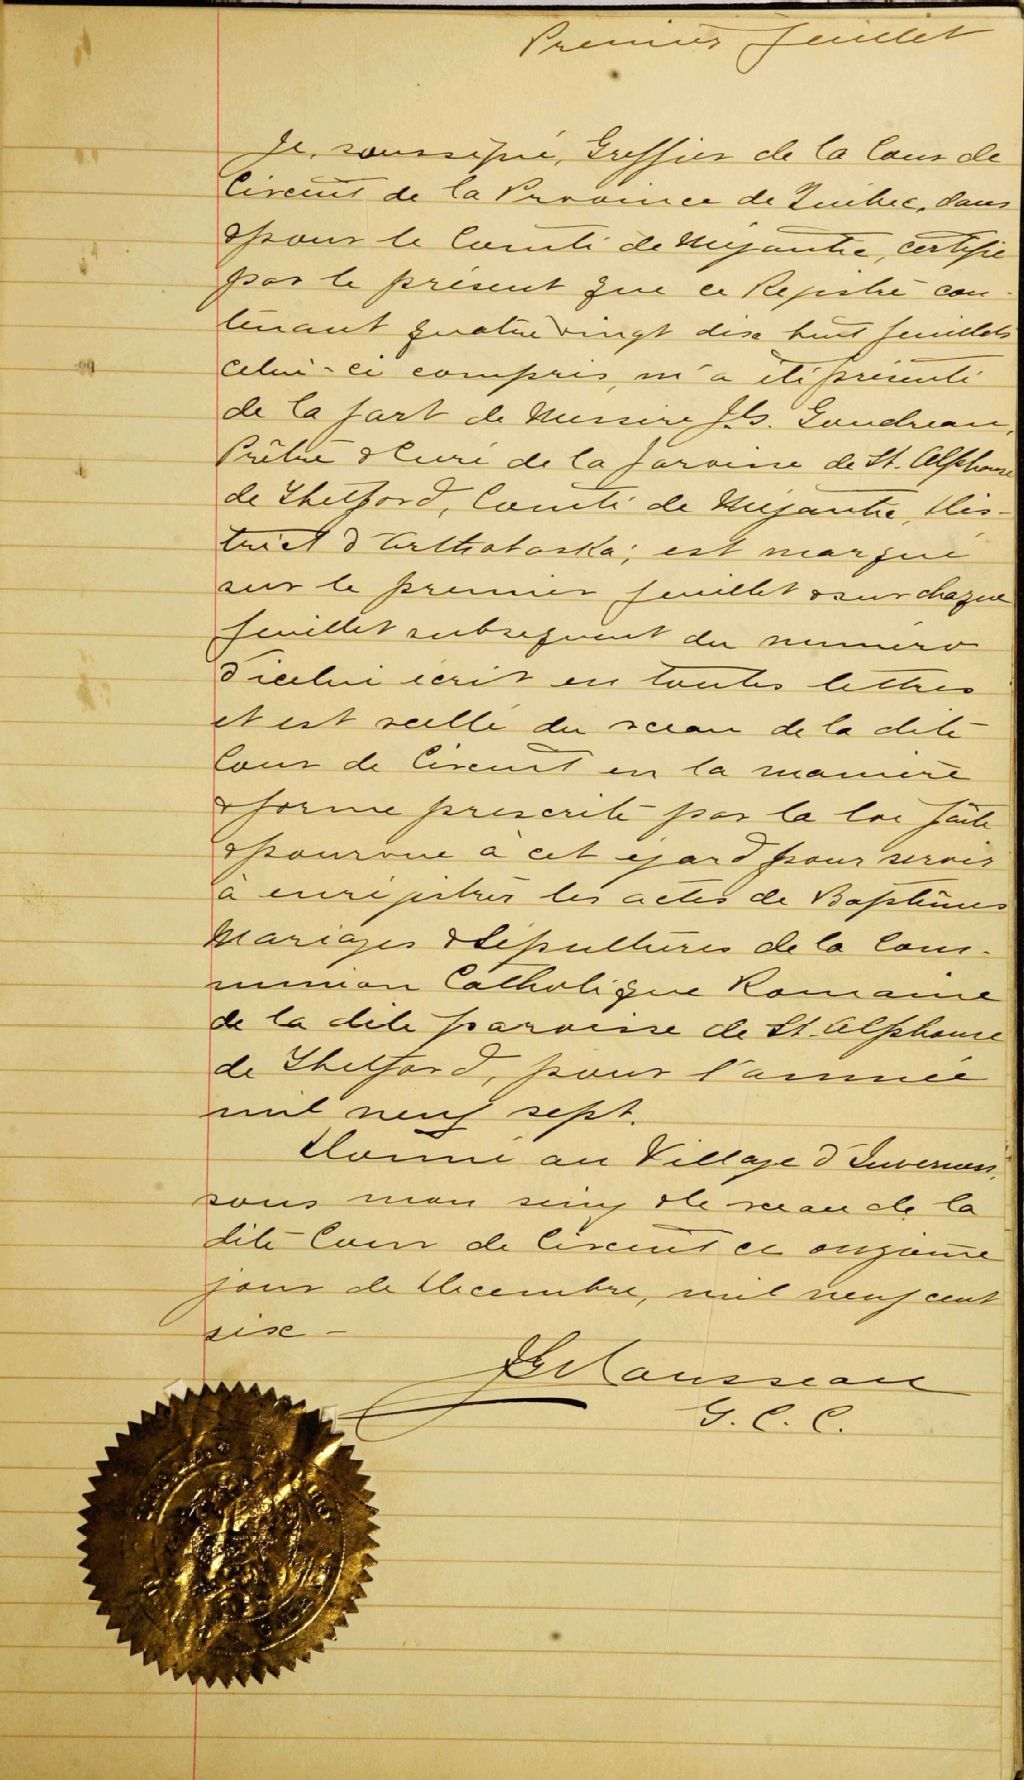 Premier feuillet
Je, soussigné, Greffier de la Cour de
Circuit de la Province de Québec, dans
& pour le Comté de Mégantic, certifie
par le présent que ce Registre con-
tenant quatre vingt dix huit feuillets
celui-ci compris, m'a été présenté
de la part de Messire J. Goudreau,
Prêtre & Curé de la paroisse de St. Alphonse
de Thetford, Comté de Mégantic, Dis-
trict d'Arthabaska; est marqué
sur le premier feuillet & sur chaque
feuillet subsequent du numéro
d'icelui écrit en toutes lettres
et est scellé du sceau de la dite
Cour de Circuit en la manière
& forme prescrite par la loi faite
& pourvue à cet égard pour servir
à enregistrer les actes de Baptêmes
Mariages & Sépultures de la Com-
munion Catholique Romaine
de la dite paroisse de St. Alphonse
de Thetford, pour l'année
mil neuf sept.
Donné au Village d'Inverness,
sous mon seing & le sceau de la
dite Cour de Circuit ce onzième
jour de Decembre, mil neuf cent
six -
Rousseau
G. C. C.